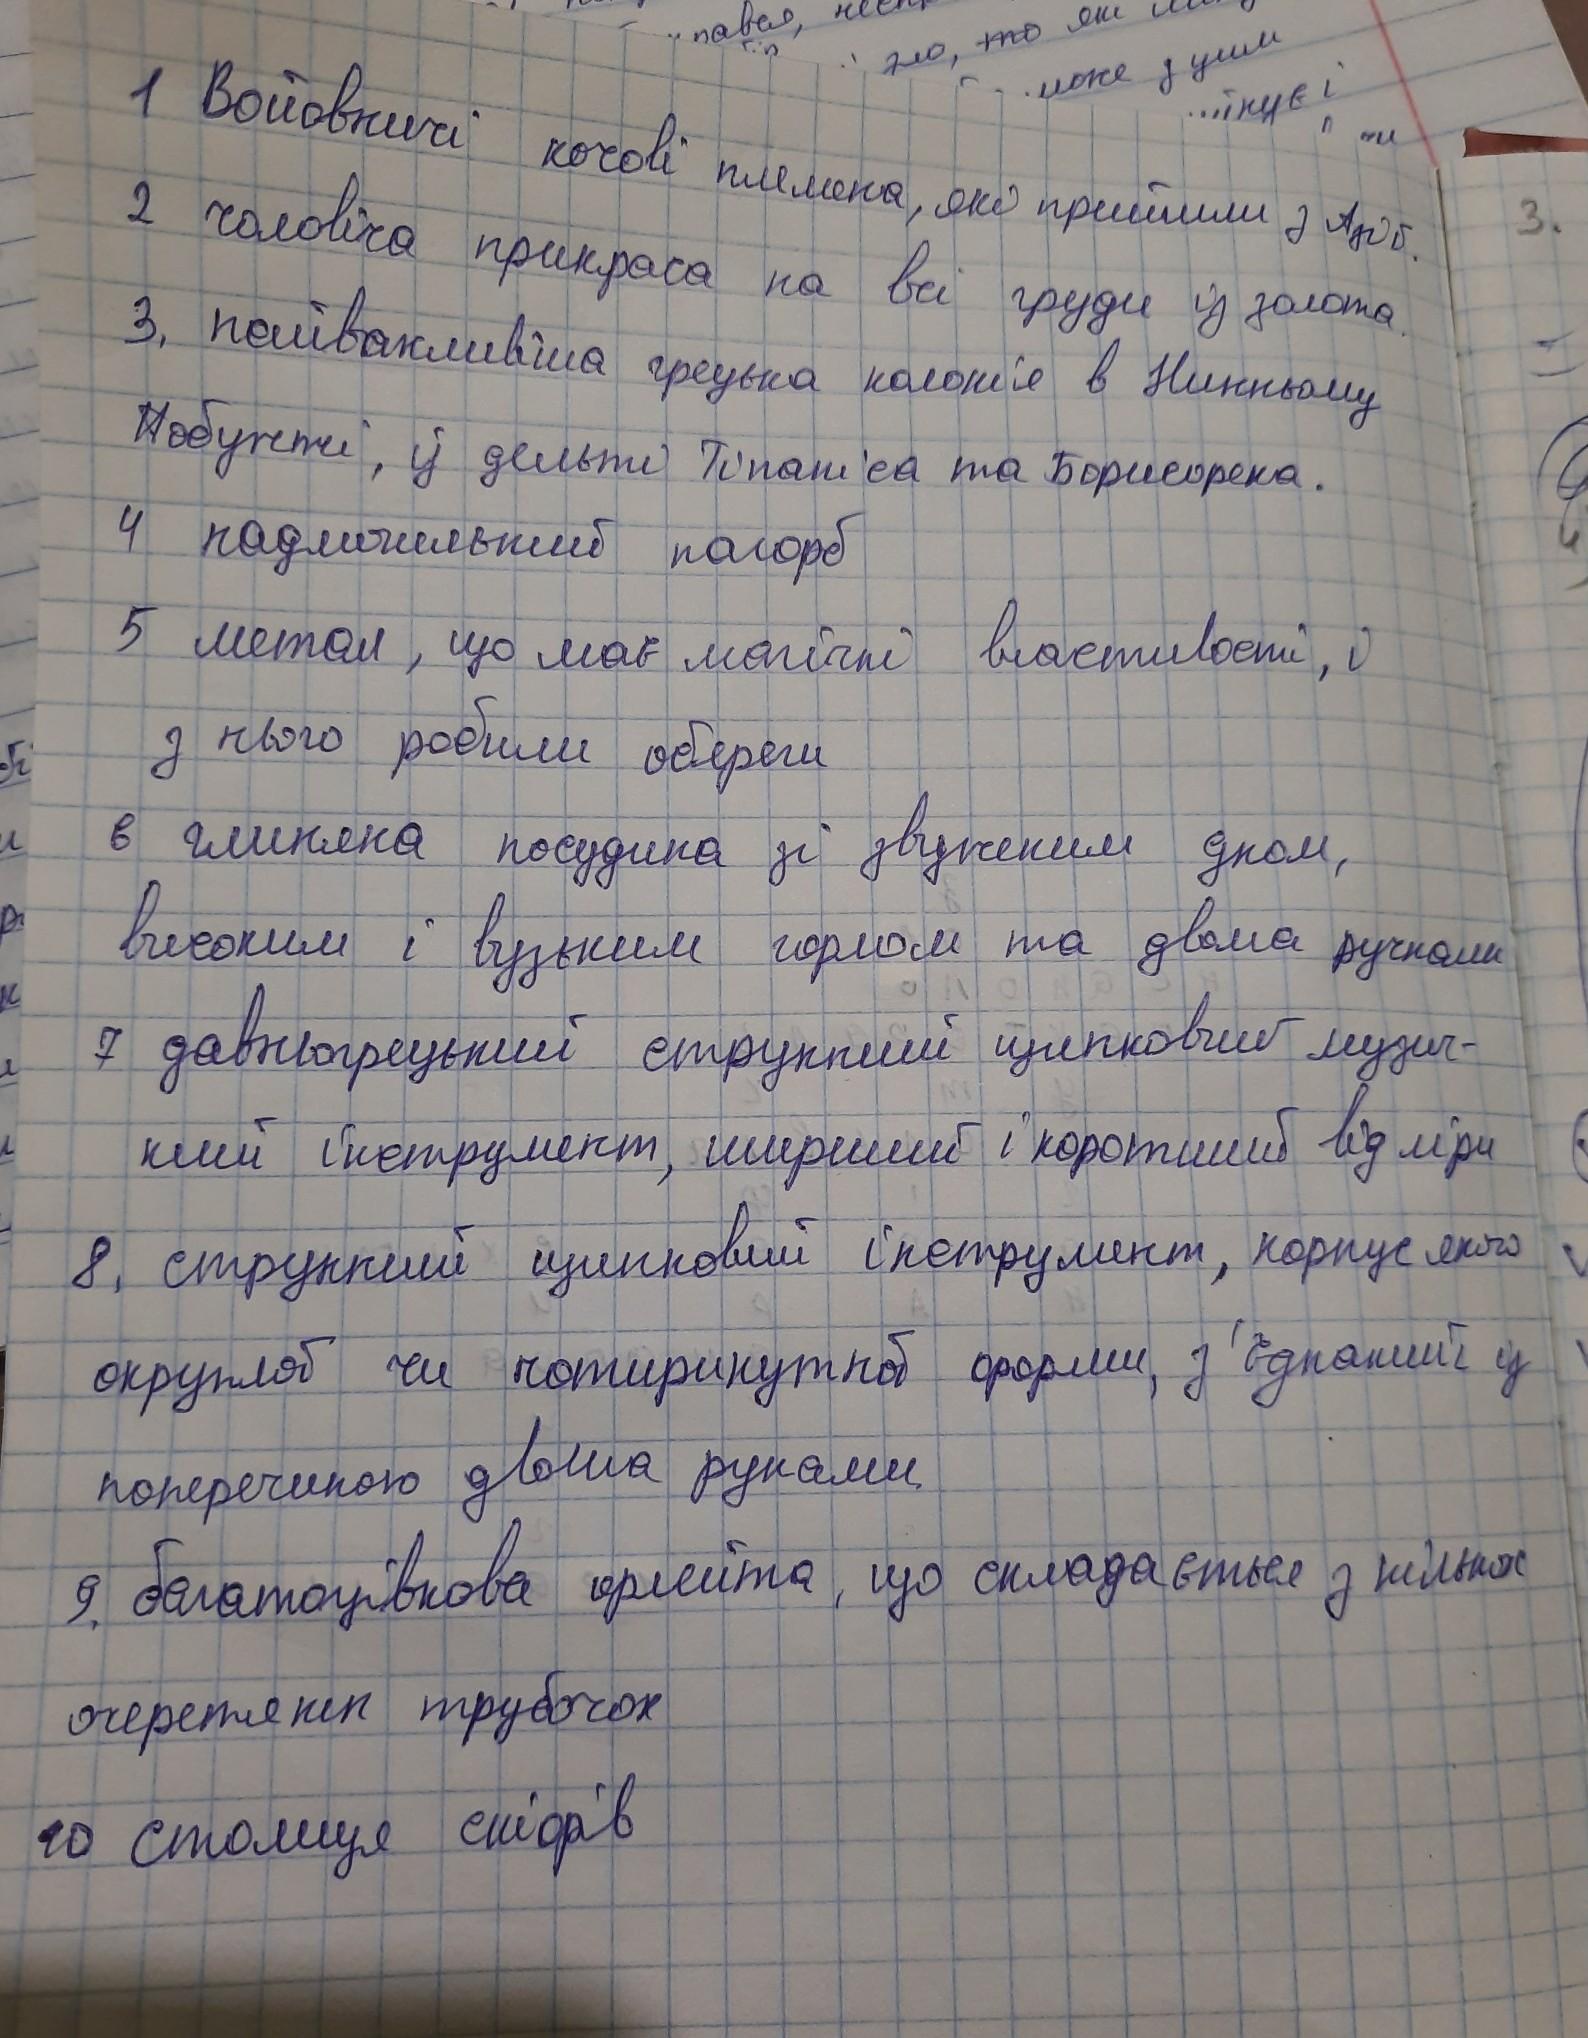 пався,
зло, то які
може з цим
1 Войовничі кочові племена, які прийшли з Азії.
2 чоловіча прикраса на всі груди із золота.
3. найважливіша грецька колонія в Нижньому
Побужжі, у дельті Гіпаніса та Борисфена.
4 надмогильний пагорб
5 метал, що має магічні властивості, і
з нього робили обереги
6 глиняна посудина зі звуженим дном,
високим і вузьким горлом та двома ручками
7 давньогрецький струнний щипковий музич-
ний інструмент, ширший і коротший від ліри
8. струнний щипковий інструмент, корпус якого
округлої чи чотирикутної форми, з'єднаний із
поперечиною двома руками
9. багатоцівкова флейта, що складається з кількох
очеретяних трубочок
10 столиця скіфів
3.